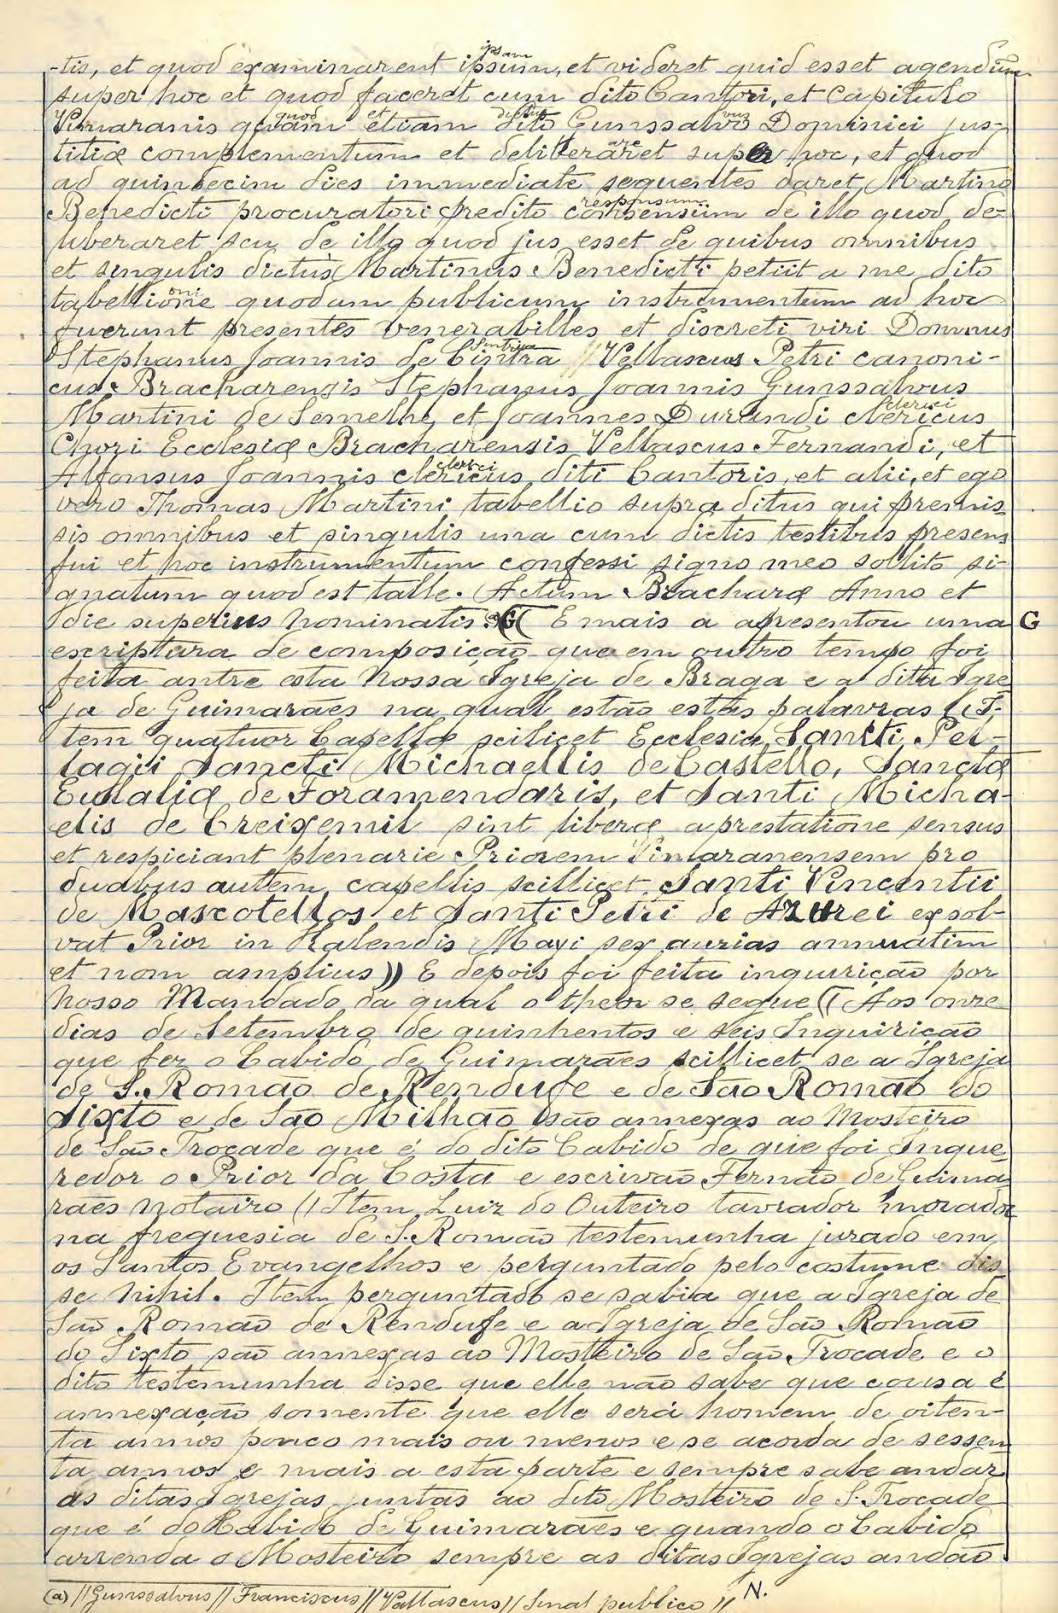 -tis, et quod examinarent ipsum, et videret quid esset agendum
ipsam
super hoc et quod faceret cum dito Cantori, et Capitulo
Vimaranis quam etiam dito Gunssalvo Dominici jus-
quod et dictus vus
titiæ complementum et deliberaret super hoc, et quod
are
ad quindecim dies immediate sequentes daret Martino
Benedicti procuratori predito consensum de illo quod de-
responsum
liberaret seu de illo quod jus esset de quibus omnibus
et singulis dictus Martinus Benedicti petiit a me dito
tabellione quodam publicum instrumentum ad hoc
oni
fuerunt presentes venerabilles et discreti viri Domnus
Stephanus Joannis de Cintra // Vellascus Petri canoni-
Sintria
cus Bracharensis Stephanus Joannis Gunssalvous
Martini de Semelhe, et Joannes Durandi clericus
clerici
Chori Ecclesiæ Bracharensis Vellascus Fernandi, et
Alfonsus Joannis clericus diti Cantoris, et alii, et ego
clerici
vero Thomas Martini tabellio supra ditus qui premis
sis omnibus et singulis una cum dictis testibus presens
fui et hoc instrumentum confessi signo meo sollito si-
gnatum quod est talle. Actum Bracharæ Anno et
die superius nominatis. G (( E mais a apresentou uma G
escriptura de composição que em outro tempo foi
feita antre esta nossa Igreja de Braga e a dita Igre
ja de Guimarães na qual estão estas palavras (( I-
tem quatuor Capellæ scilicet Ecclesia Sancti Pel-
lagii Sancti Michaellis de Castello, Sanctæ
Eulaliæ de Foramendaris, et Santi Micha-
elis de Creixemil sint liberæ a prestatione sensus
et respiciant plenarie Priorem Vimaranensem pro
duabus autem capellis scillicet Santi Vincentii
de Mascotellos et Santi Petri de Azurei exsol-
vat Prior in Kalendis Mayi sex aurias annuatim
et nom amplius )) E depois foi feita inquirição por
nosso Mandado da qual o theor se segue (( Aos onze
dias de Setembro de quinhentos e seis Inquirição
que fez o Cabido de Guimarães scillicet se a Igreja
de S. Romão de Rendufe e de São Romão do
Sixto e de São Milhão são annexas ao Mosteiro
de São Trocade que é do dito Cabido de que foi Inque
redor o Prior da Costa e escrivão Fernão de Guima
rães notairo (( Item Luiz do Outeiro lavrador morador
na freguesia de S. Romão testemunha jurado em
os Santos Evangelhos e perguntado pelo costume dis
se nihil. Item perguntado se sabia que a Igreja de
São Romão de Rendufe e a Igreja de São Romão
do Sixto são annexas ao Mosteiro de São Trocade e o
dito testemunha disse que elle não sabe que cousa é
annexação somente que elle será homem de oiten-
ta annos pouco mais ou menos e se acorda de sessen
ta annos e mais a esta parte e sempre sabe andar
as ditas Igrejas juntas ao dito Mosteiro de S. Trocade
que é do Cabido de Guimarães e quando o Cabido
arrenda o Mosteiro sempre as ditas Igrejas andão
(a) // Gunssalvus // Franciscus // Vallascus // Sinal publico // N.